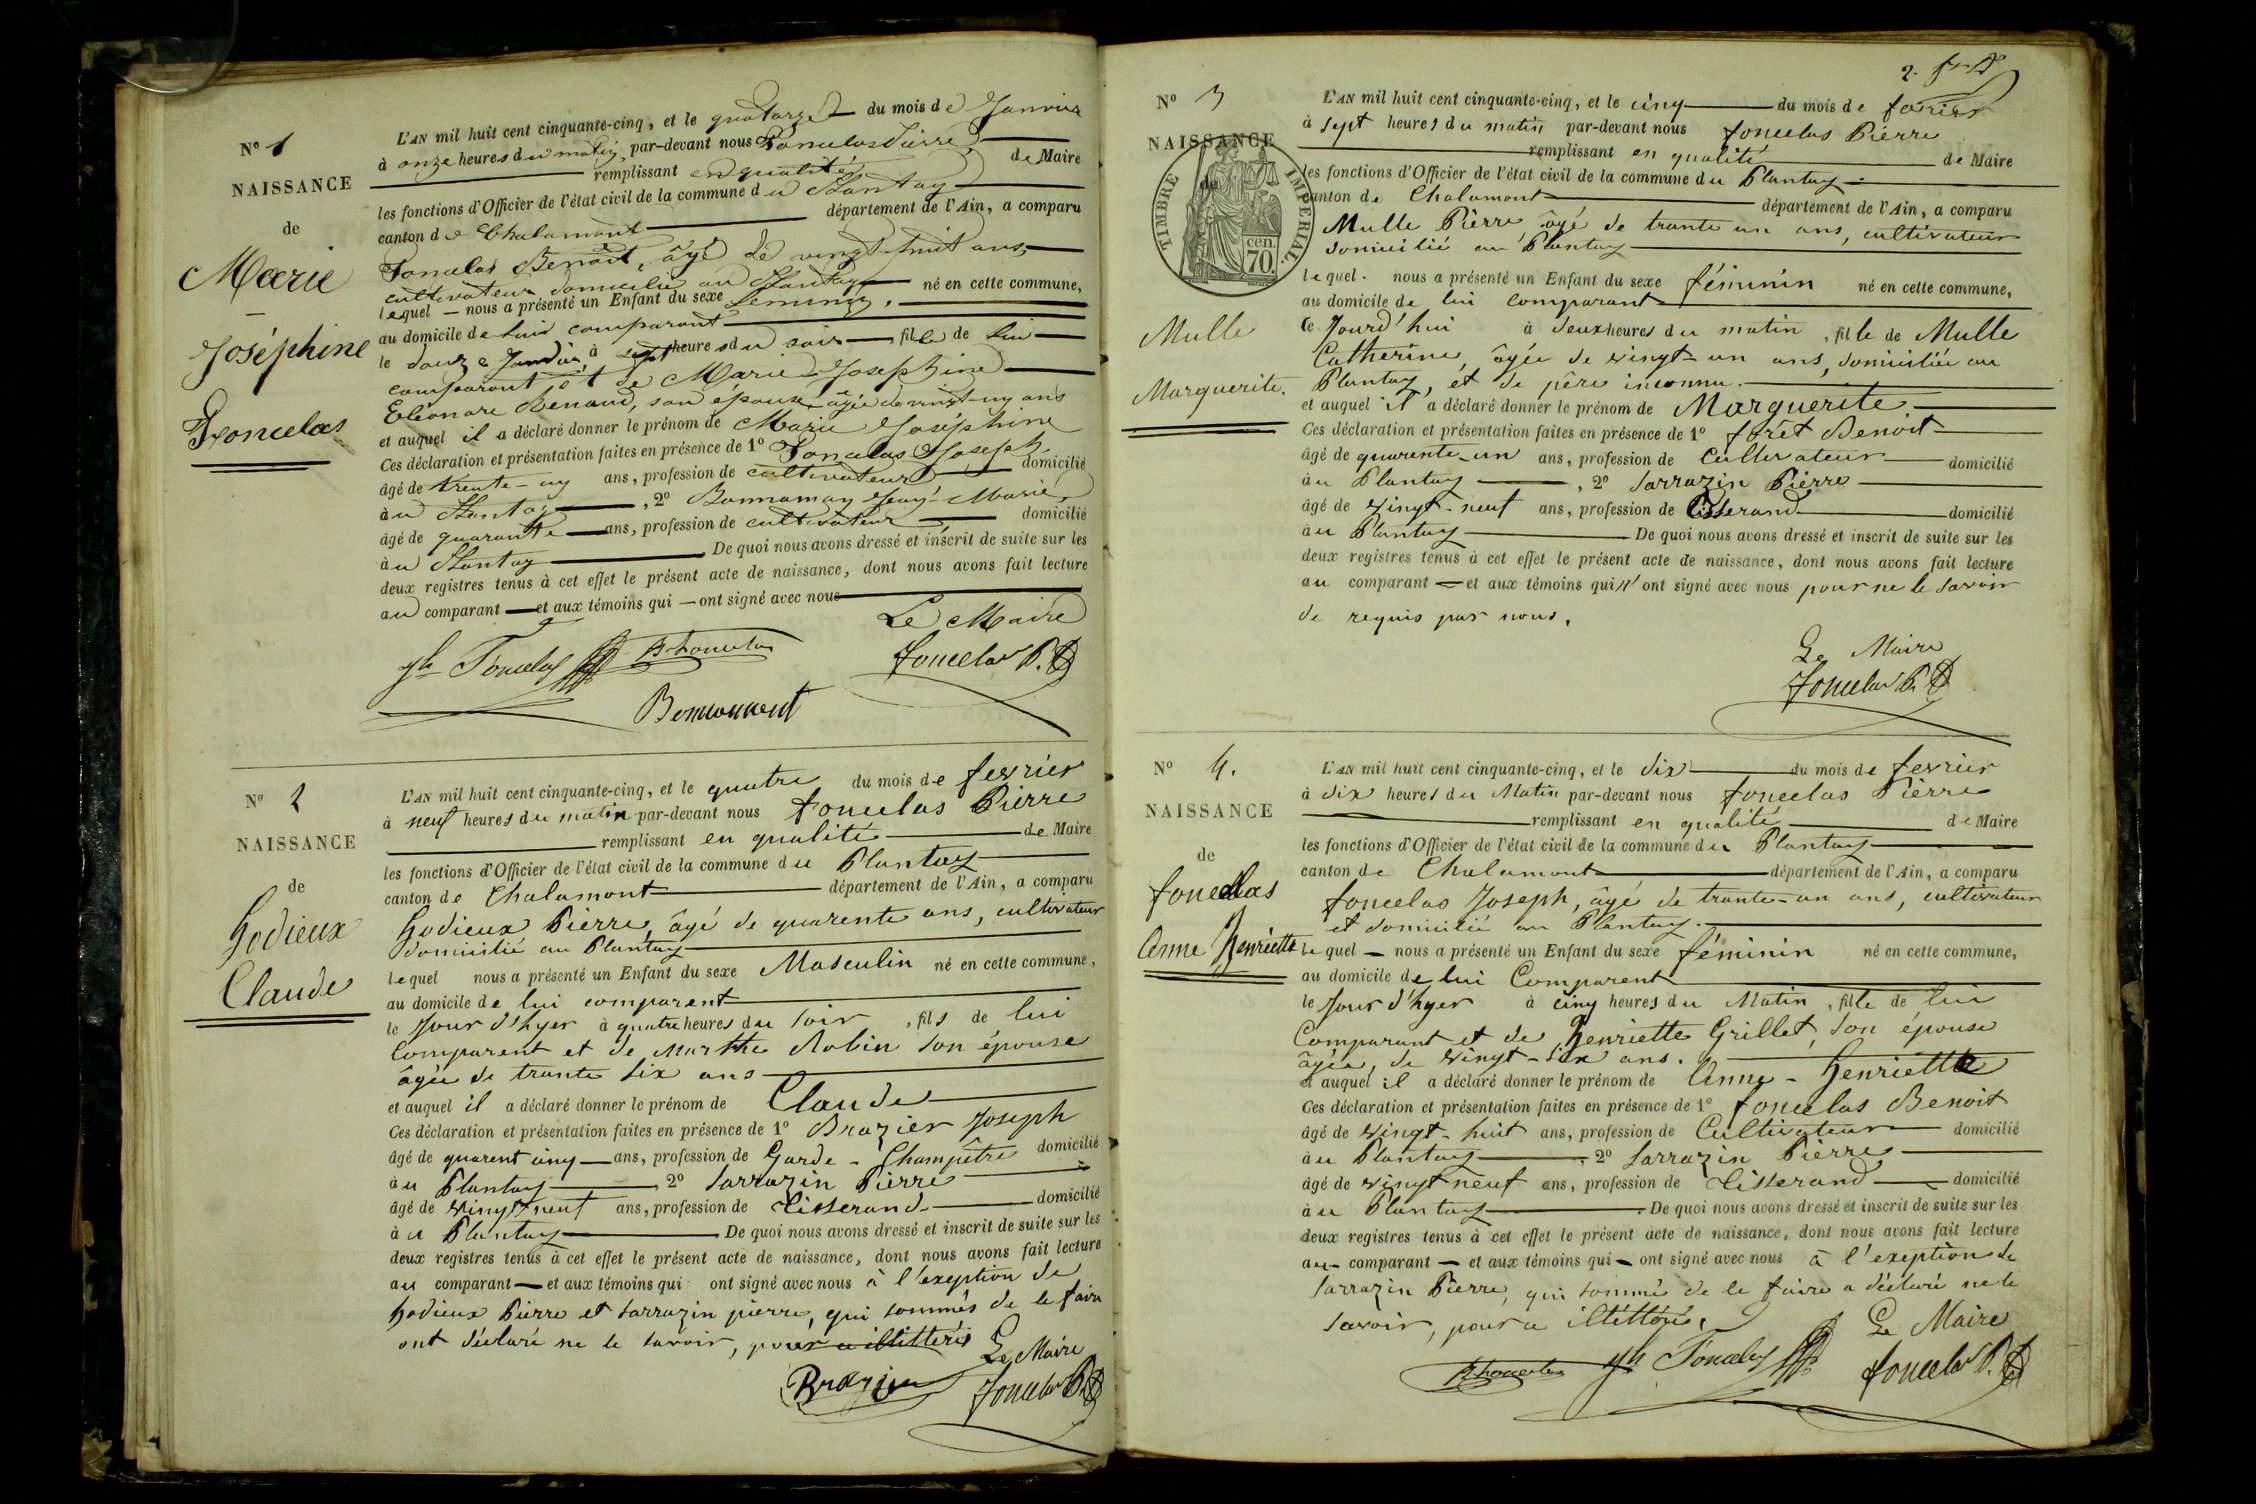 N° 1
NAISSANCE
de
Marie
Joséphine
Foncelas
L'AN mil huit cent cinquante-cinq, et le quatorze du mois de Janvier
à onze heures du matin, par-devant nous Foncelas Pierre
remplissant en qualité de Maire
les fonctions d'Officier de l'état civil de la commune du Plantay
canton de Chalamont département de l'Ain, a comparu
Foncelas Benoit, âgé de vingt-huit ans
cultivateur domicilié au Plantay
lequel nous a présenté un Enfant du sexe féminin, né en cette commune,
au domicile de lui comparant
le douze Janvier à sept heures du soir fille de lui
comparant et de Marie Josephine
Eléonore Renaud, son épouse âgée de vingt-un ans
et auquel il a déclaré donner le prénom de Marie Joséphine
Ces déclaration et présentation faites en présence de 1° Foncelas Joseph
âgé de trente-un ans, profession de cultivateur domicilié
au Plantay, 2° Bonnamay Jean-Marie
âgé de quarante ans, profession de cultivateur domicilié
au Plantay De quoi nous avons dressé et inscrit de suite sur les
deux registres tenus à cet effet le présent acte de naissance, dont nous avons fait lecture
au comparant et aux témoins qui ont signé avec nous
Le Maire
jh Foncelas B foncelas foncelas P.
N° 2
NAISSANCE
de
Godieux
Claude
L'AN mil huit cent cinquante-cinq, et le quatre du mois de fevrier
à neuf heures du matin par-devant nous foncelas Pierre
remplissant en qualité de Maire
les fonctions d'Officier de l'état civil de la commune du Plantay
canton de Chalamont département de l'Ain, a comparu
Godieux Pierre, âgé de quarente ans, cultivateur
domicilié au Plantay
lequel nous a présenté un Enfant du sexe Masculin né en cette commune,
au domicile de lui comparent
le Jour d'hyer à quatre heures du soir, fils de lui
Comparent et de Marthe Robin son épouse
âgée de trante six ans
et auquel il a déclaré donner le prénom de Claude
Ces déclaration et présentation faites en présence de 1° Brazier Joseph
âgé de quarent cinq ans, profession de Garde-Champêtre domicilié
au Plantay 2° Sarrazin Pierre
âgé de vingt neuf ans, profession de Tisserand domicilié
au Plantay De quoi nous avons dressé et inscrit de suite sur les
deux registres tenus à cet effet le présent acte de naissance, dont nous avons fait lecture
au comparant et aux témoins qui ont signé avec nous à l'exeption de
Godieux Pierre et Sarrazin pierre, qui sommés de le faire
ont déclaré ne le savoir, pour ce illittérés
Le Maire
Brazier foncelas P.
2.
N° 3
NAISSANCE
de
TIMBRE IMPERIAL
cen. 70.
Mulle
Marguerite.
L'AN mil huit cent cinquante-cinq, et le cinq du mois de fevrier
à sept heures du matin par-devant nous foncelas Pierre
remplissant en qualité de Maire
les fonctions d'Officier de l'état civil de la commune du Plantay
canton de Chalamont département de l'Ain, a comparu
Mulle Pierre, âgé de trante un ans, cultivateur
domicilié au Plantay
lequel nous a présenté un Enfant du sexe féminin né en cette commune,
au domicile de lui comparant
ce Jourd'hui à deux heures du matin, fille de Mulle
Catherine, âgée de vingt-un ans, domiciliée au
Plantay, et de père inconnu.
et auquel il a déclaré donner le prénom de Marguerite.
Ces déclaration et présentation faites en présence de 1° forêt Benoit
âgé de quarente-un ans, profession de Cultivateur domicilié
au Plantay, 2° Sarrazin Pierre
âgé de vingt-neuf ans, profession de Tisserand domicilié
au Plantay De quoi nous avons dressé et inscrit de suite sur les
deux registres tenus à cet effet le présent acte de naissance, dont nous avons fait lecture
au comparant et aux témoins qui n'ont signé avec nous pour ne le savoir
de requis par nous.
Le Maire
foncelas P.
N° 4.
NAISSANCE
de
foncelas
Anne Henriette
L'AN mil huit cent cinquante-cinq, et le dix du mois de fevrier
à dix heures du Matin par-devant nous foncelas Pierre
remplissant en qualité de Maire
les fonctions d'Officier de l'état civil de la commune du Plantay
canton de Chalamont département de l'Ain, a comparu
foncelas Joseph, âgé de trante-un ans, cultivateur
et domicilié au Plantay.
lequel nous a présenté un Enfant du sexe féminin né en cette commune,
au domicile de lui Comparent
le Jour d'hyer à cinq heures du Matin, fille de lui
Comparant et de Henriette Grillet, son épouse
âgée, de vingt-six ans.
et auquel il a déclaré donner le prénom de Anne-Henriette
Ces déclaration et présentation faites en présence de 1° foncelas Benoit
âgé de vingt-huit ans, profession de Cultivateur domicilié
au Plantay, 2° Sarrazin Pierre
âgé de vingt neuf ans, profession de Tisserand domicilié
au Plantay De quoi nous avons dressé et inscrit de suite sur les
deux registres tenus à cet effet le présent acte de naissance, dont nous avons fait lecture
au comparant et aux témoins qui ont signé avec nous à l'exeption de
Sarrazin Pierre, qui sommé de le faire a déclaré ne le
savoir, pour ce
Le Maire
B foncelas jh Foncelas foncelas P.